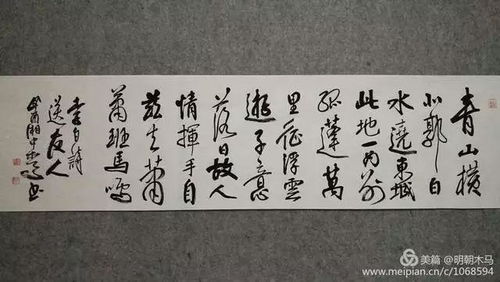 青山横
北郭白
水遶東城
此地一为别
孤蓬萬
里征浮雲
遊子意
落日故人
情揮手自
茲去蕭
蕭班馬鳴
李白詩
送友人
酉湘中
美篇 @明朝木马
www.meipian.cn/c/1068594